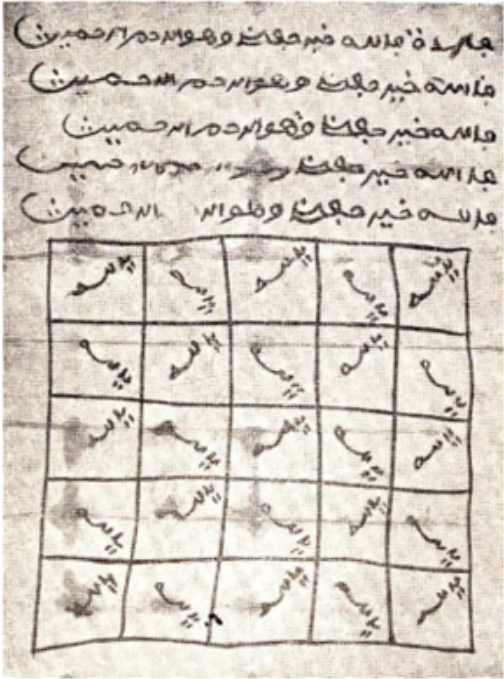 فالله خير حفظا وهو ارحم الرحمين
فالله خير حفظا وهو ارحم الرحمين
فالله خير حفظا وهو ارحم الرحمين
فالله خير حفظا
فالله خير حفظا وهو الرحمين
يالله يالله يالله يالله يالله
يالله يالله يالله يالله يالله
يالله يالله يالله يالله يالله
يالله يالله يالله يالله يالله
يالله يالله يالله يالله يالله